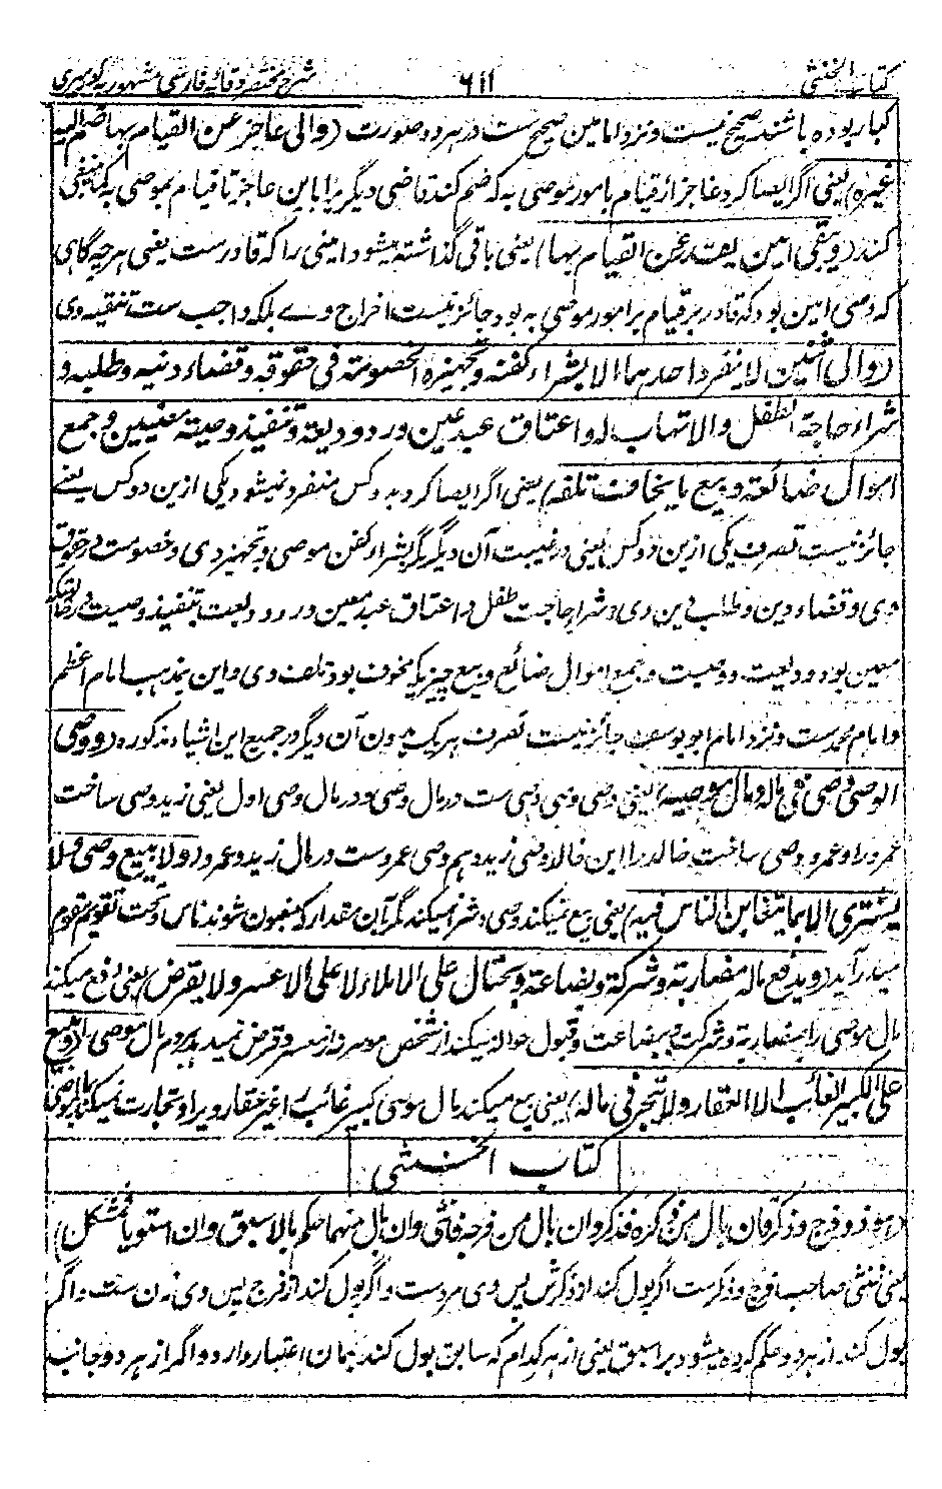 کتاب الخنثی ۶۱۱ شرح مختصر وقایه فارسی مشهور به کوهیری
کبار بوده باشند صحیح نیست و نزد امامین صحیح ست در هر دو صورت (والی عاجز عن القیام بها ضم الیه
غیره) یعنی اگر ایصا کرد عاجز از قیام بامور موصی به که ضم کند قاضی دیگر یرا باین عاجز تا قیام بموصی به کما ینبغی
کند (ویبقی امین یقدر عن القیام بها) یعنی باقی گذاشته میشود امینی را که قادرست یعنی هر چه گاهی
که وصی امین بود که قادر بر قیام بر امور موصی به بود جائز نیست اخراج وے بلکه واجب ست تنقیه وی
(والی اثنین لا ینفرد احدهما الا بشراء کفنه وتجهیزه الخصومة فی حقوقه وقضاء دینه وطلبه و
شراء حاجة الطفل والاتهاب له واعتاق عبد عین ورد ودیعة وتنفیذ وصیة معینین وجمع
اموال ضائعة وبیع ما یخاف تلفه) یعنی اگر ایصا کرد بدو کس منفرد نمیشود یکی ازین دو کس یعنے
جائز نیست تصرف یکی ازین دو کس یعنی در غیبت آن دیگر مگر بشراء کفن موصی و تجهیز وی و خصومت در حقوق
وی و قضاء دین و طلب دین وی و شراء حاجت طفل و اعتاق عبد معین و رد ودیعت تنفیذ وصیت
معین بود ودیعت و وصیت و جمع اموال ضائع و بیع چیزیکه مخوف بود تلف وی و این مذهب امام اعظم
و امام محمدست و نزد امام ابو یوسف جائز نیست تصرف هر یک بدون آن دیگر در جمیع این اشیاء مذکوره (ووصی
الوصی وصی فی ماله ومال موصیه) یعنی وصی وصی وصی ست در مال وصی و در مال وصی اول یعنی زید وصی ساخت
عمرو را و عمرو وصی ساخت خالد را این خالد وصی زید و هم وصی عمرو ست در مال زید و عمرو (ولا یبیع وصی ولا
یشتری الا بما یتغابن الناس فیه) یعنی بیع نمیکند وصی و شرا نمیکند مگر آن مقدار که مغبون شوند ناس و تحت تقویم مقوم
میدرآید (ویدفع ماله مضاربة وشرکة وبضاعة ویحتال علی الاملاء لا علی الاعسر ولا یقرض) یعنی دفع میکند
مال موصی را بمضاربة و شرکت و بضاعت و قبول حواله میکند از شخص موسر نه از معسر و قرض نمیدهد مردم مال موصی را (ویبیع
علی الکبیر الغائب الا العقار ولا یتجر فی ماله) یعنی بیع میکند مال موصی کبیر غائب را غیر عقار ویرا و تجارت نمیکند
کتاب الخنثی
(هو ذو فرج وذکر فان بال من ذکره فذکر وان بال من فرجه فانثی وان بال منهما حکم بالاسبق وان استویا فمشکل)
یعنی خنثی صاحب فرج و ذکرست اگر بول کند از ذکرش پس وی مردست و اگر بول کند از فرج پس وی زن ست و اگر
بول کند از هر دو حکم کرده میشود بر اسبق یعنی از هر کدام که سابق بول کند بهمان اعتبار دارد و اگر از هر دو جانب